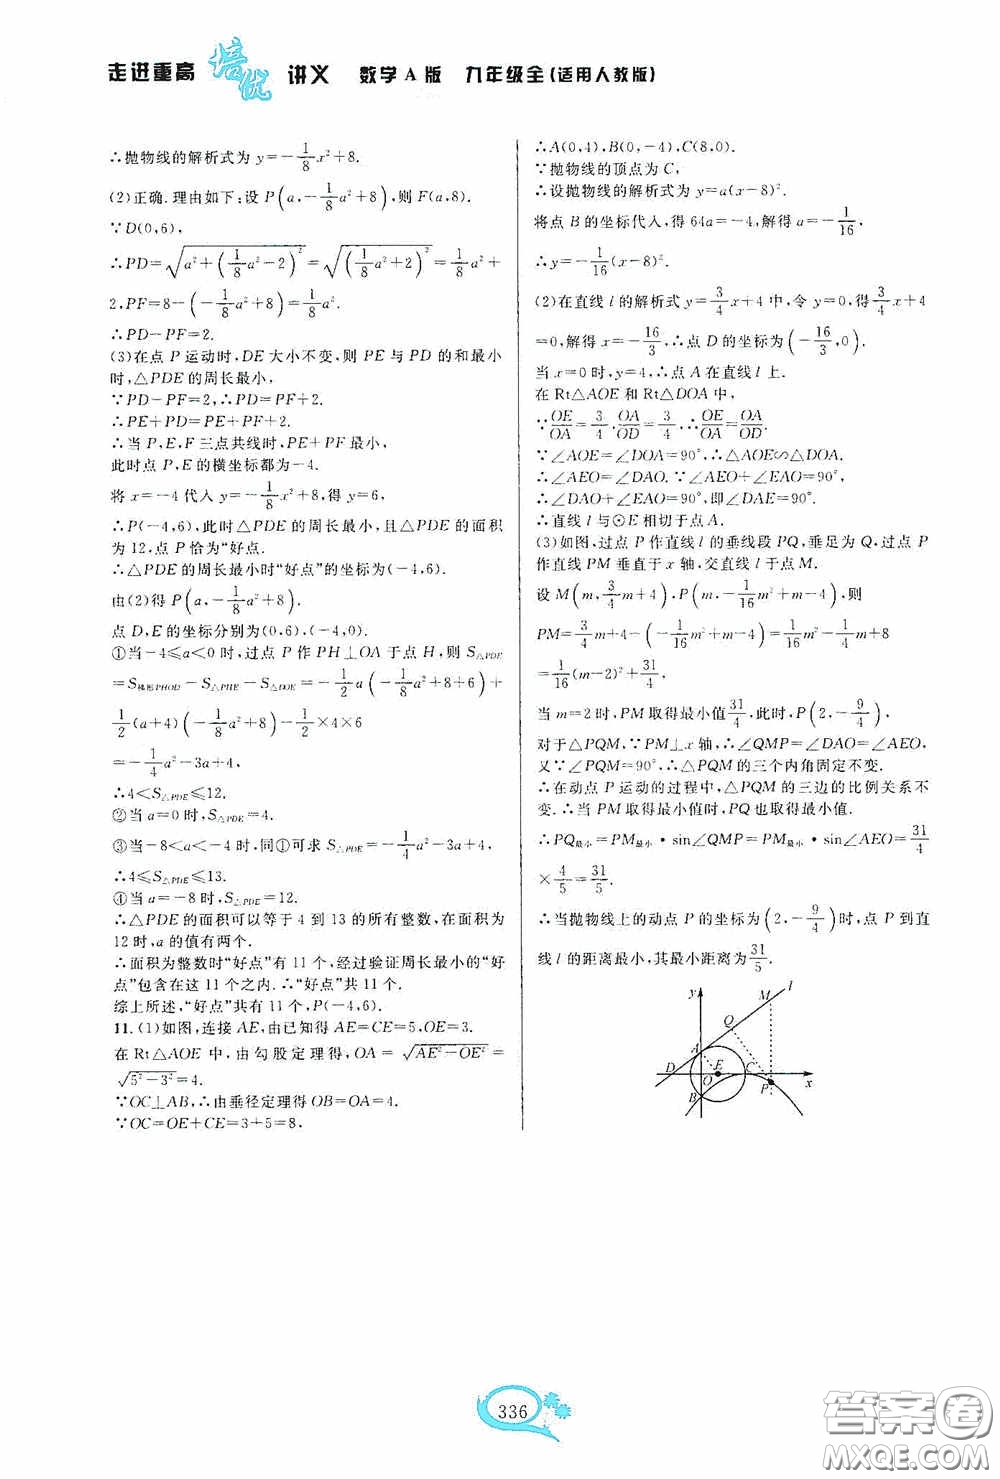 走进重高 培优 讲义 数学A版 九年级全(适用人教版)
∴抛物线的解析式为 y=-1/8x²+8.
(2)正确.理由如下:设 P(a,-1/8a²+8),则F(a,8).
∵D(0,6),
∴PD=√(a²+(1/8a²-2)²)=√((1/8a²+2)²)=1/8a²+
2,PF=8-(-1/8a²+8)=1/8a².
∴PD-PF=2.
(3)在点 P 运动时,DE 大小不变,则 PE 与 PD 的和最小
时,△PDE 的周长最小,
∵PD-PF=2,∴PD=PF+2.
∴PE+PD=PE+PF+2.
∴当 P,E,F 三点共线时,PE+PF 最小,
此时点 P,E 的横坐标都为-4.
将 x=-4 代入 y=-1/8x²+8,得 y=6,
∴P(-4,6),此时△PDE 的周长最小,且△PDE 的面积
为 12,点 P 恰为“好点.
∴△PDE 的周长最小时“好点”的坐标为(-4,6).
由(2)得 P(a,-1/8a²+8).
点 D,E 的坐标分别为(0,6),(-4,0).
①当-4≤a<0 时,过点 P 作 PH⊥OA 于点 H,则 S△PDE
=S梯形PHOD-S△PHE-S△DOE=-1/2a(-1/8a²+8+6)+
1/2(a+4)(-1/8a²+8)-1/2×4×6
=-1/4a²-3a+4,
∴4<S△PDE≤12.
②当 a=0 时,S△PDE=4.
③当-8<a<-4 时,同①可求 S△PDE=-1/4a²-3a+4,
∴4≤S△PDE≤13.
④当 a=-8 时,S△PDE=12.
∴△PDE 的面积可以等于 4 到 13 的所有整数,在面积为
12 时,a 的值有两个.
∴面积为整数时“好点”有 11 个,经过验证周长最小的“好
点”包含在这 11 个之内.∴“好点”共 11 个.
综上所述,“好点”共有 11 个,P(-4,6).
11. (1)如图,连接 AE,由已知得 AE=CE=5,OE=3.
在 Rt△AOE 中,由勾股定理得,OA=√(AE²-OE²)=
√(5²-3²)=4.
∵OC⊥AB,∴由垂径定理得 OB=OA=4.
∵OC=OE+CE=3+5=8,
∴A(0,4),B(0,-4),C(8,0).
∵抛物线的顶点为 C,
∴设抛物线的解析式为 y=a(x-8)².
将点 B 的坐标代入,得 64a=-4,解得 a=-1/16,
∴y=-1/16(x-8)².
(2)在直线 l 的解析式 y=3/4x+4 中,令 y=0,得3/4x+4
=0,解得 x=-16/3,∴点 D 的坐标为(-16/3,0).
当 x=0 时,y=4,∴点 A 在直线 l 上.
在 Rt△AOE 和 Rt△DOA 中,
∵OE/OA=3/4,OA/OD=3/4,∴OE/OA=OA/OD.
∵∠AOE=∠DOA=90°,∴△AOE∽△DOA.
∴∠AEO=∠DAO.∵∠AEO+∠EAO=90°,
∴∠DAO+∠EAO=90°,即∠DAE=90°.
∴直线 l 与⊙E 相切于点 A.
(3)如图,过点 P 作直线 l 的垂线段 PQ,垂足为 Q,过点 P
作直线 PM 垂直于 x 轴,交直线 l 于点 M.
设 M(m,3/4m+4),P(m,-1/16m²+m-4),则
PM=3/4m+4-(-1/16m²+m-4)=1/16m²-1/4m+8
=1/16(m-2)²+31/4,
当 m=2 时,PM 取得最小值31/4,此时,P(2,-9/4),
对于△PQM,∵PM⊥x 轴,∴∠QMP=∠DAO=∠AEO,
又∵∠PQM=90°,∴△PQM 的三个内角固定不变.
∴在动点 P 运动的过程中,△PQM 的三边的比例关系不
变.∴当 PM 取得最小值时,PQ 也取得最小值.
∴PQ最小=PM最小·sin∠QMP=PM最小·sin∠AEO=31/4
×4/5=31/5.
∴当抛物线上的动点 P 的坐标为(2,-9/4)时,点 P 到直
线 l 的距离最小,其最小距离为31/5.
y
M
l
Q
A
D
O
E
C
P
x
B
336
答案圈
MXQE.COM